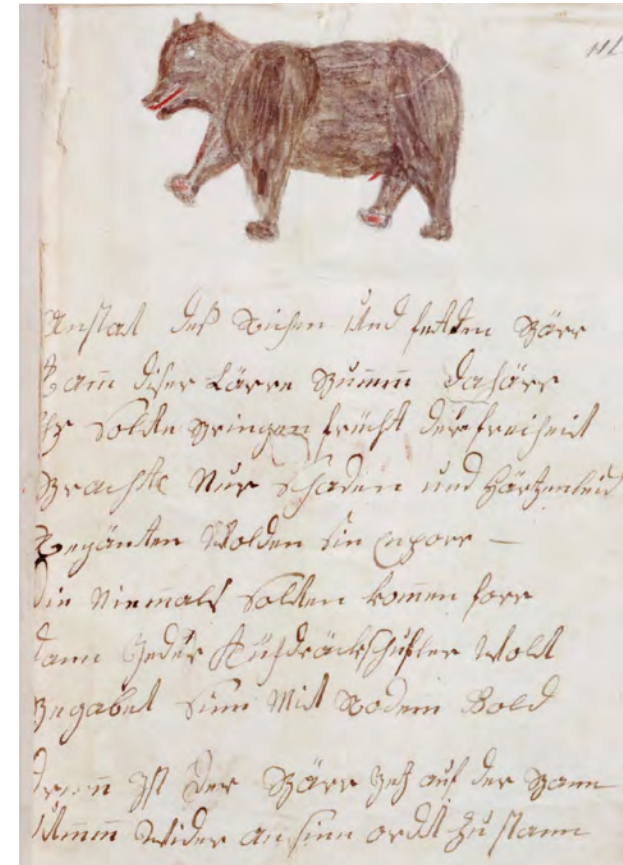 Anstat deß Reichen und fetten Bärr
Kam diser Lärre Bumm dahärr
Er Solte Bringen frücht der freiheit
Brachte Nur schaden und Härtzenleid
Regänten Wolden sin Enporr —
die Niemals Solten komen forr
dann Jeder Küödräckschufler Wolt
Begabet sinn Mit Rodem Gold
ist der Bärr Jetz auf der Bann
Umm Wider an sinn ordt zu stann